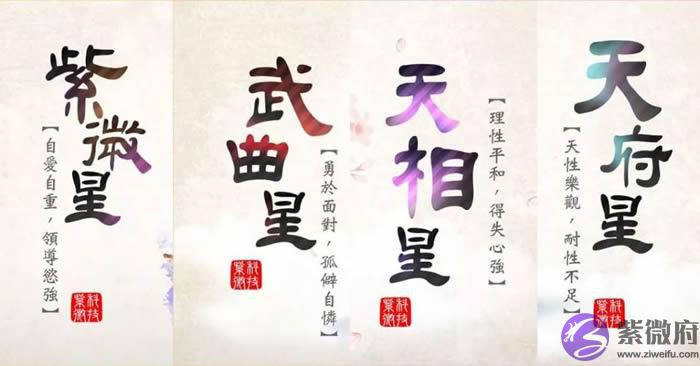 紫微星
【自愛自重，領導慾強】
科技
紫微
武曲星
【勇於面對，孤僻自憐】
科技
紫微
天相星
【理性平和，得失心強】
科技
紫微
天府星
【天性樂觀，耐性不足】
科技
紫微
紫微府
www.ziweifu.com